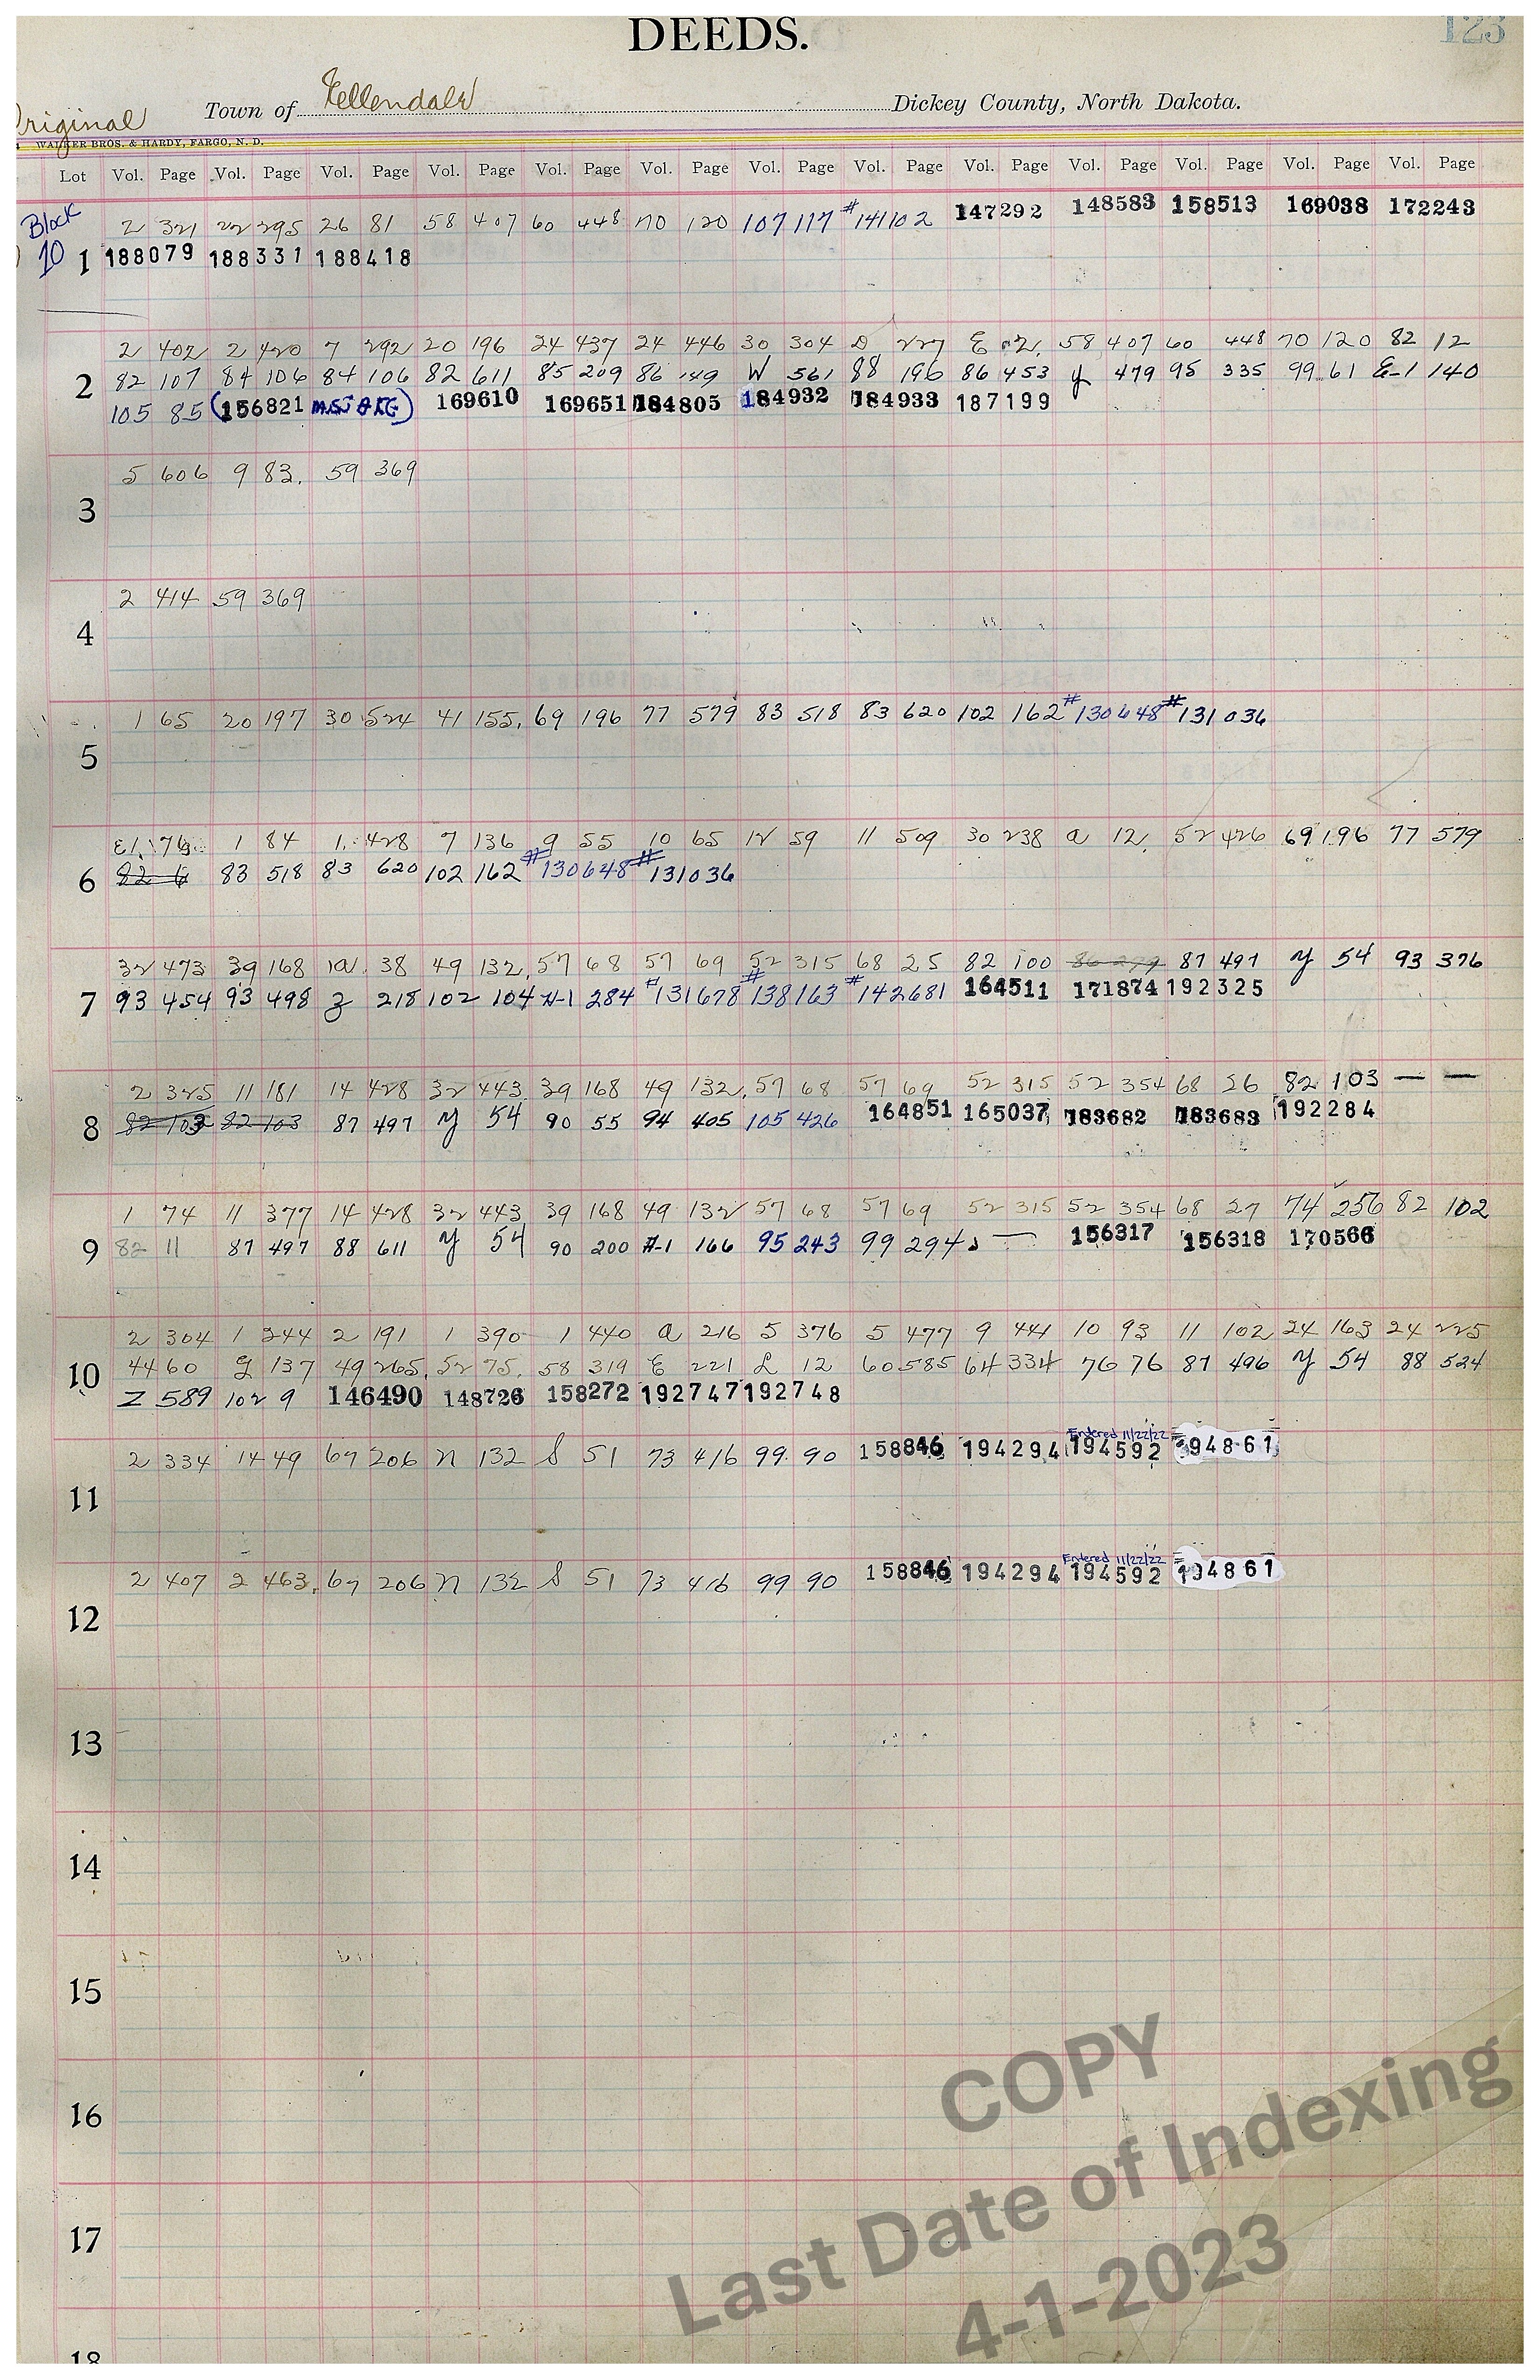 123
DEEDS.
Original Town of Ellendale Dickey County, North Dakota.
WALKER BROS. & HARDY, FARGO, N. D.
Lot Vol. Page Vol. Page Vol. Page Vol. Page Vol. Page Vol. Page Vol. Page Vol. Page Vol. Page Vol. Page Vol. Page Vol. Page Vol. Page
Block 2 321 22 295 26 81 58 407 60 448 70 120 107 117 #141102 147292 148583 158513 169038 172243
10 1 188079 188331 188418
2 402 2 420 7 292 20 196 24 437 24 446 30 304 D 227 E 58 407 60 448 70 120 82 12
2 82 107 84 106 84 106 82 611 85 209 86 149 W 561 88 196 86 453 y 479 95 335 99 61 E-1 140
105 85 (156821 MISTAKE) 169610 169651 184805 184932 184933 187199
5 606 9 83. 59 369
3
2 414 59 369
4
1 65 20 197 30 524 41 155. 69 196 77 579 83 518 83 620 102 162 #130648 #131036
5
E1. 76 1 84 1. 428 7 136 9 55 10 65 12 59 11 509 30 238 a 12. 52 426 69 196 77 579
6 82 6 83 518 83 620 102 162 #130648 #131036
32 473 39 168 38 49 132. 57 68 57 69 52 315 68 25 82 100 86 279 87 497 y 54 93 376
7 93 454 93 498 z 218 102 104 H-1 284 #131678 #138163 #142681 164511 171874 192325
2 325 11 181 14 428 32 443 39 168 49 132. 57 68 57 69 52 315 52 354 68 26 82 103 — —
8 82 103 82 103 87 497 y 54 90 55 94 405 105 426 164851 165037 183682 183683 192284
1 74 11 377 14 428 32 443 39 168 49 132 57 68 57 69 52 315 52 354 68 27 74 256 82 102
9 82 11 87 497 88 611 y 54 90 200 H-1 166 95 243 99 294 156317 156318 170566
2 304 1 244 2 191 1 390 1 440 a 216 5 376 5 477 9 441 10 93 11 102 24 163 24 225
10 44 60 g 137 49 265. 52 75. 58 319 E 221 L 12 60 585 64 334 76 76 87 496 y 54 88 524
Z 589 102 9 146490 148726 158272 192747 192748
Entered 11/22/22
2 334 14 49 67 206 n 132 S 51 73 416 99 90 158846 194294 194592 94861
11
Entered 11/22/22
2 407 2 463. 67 206 n 132 S 51 73 416 99 90 158846 194294 194592 194861
12
13
14
15
16
17
18
COPY
Last Date of Indexing
4-1-2023